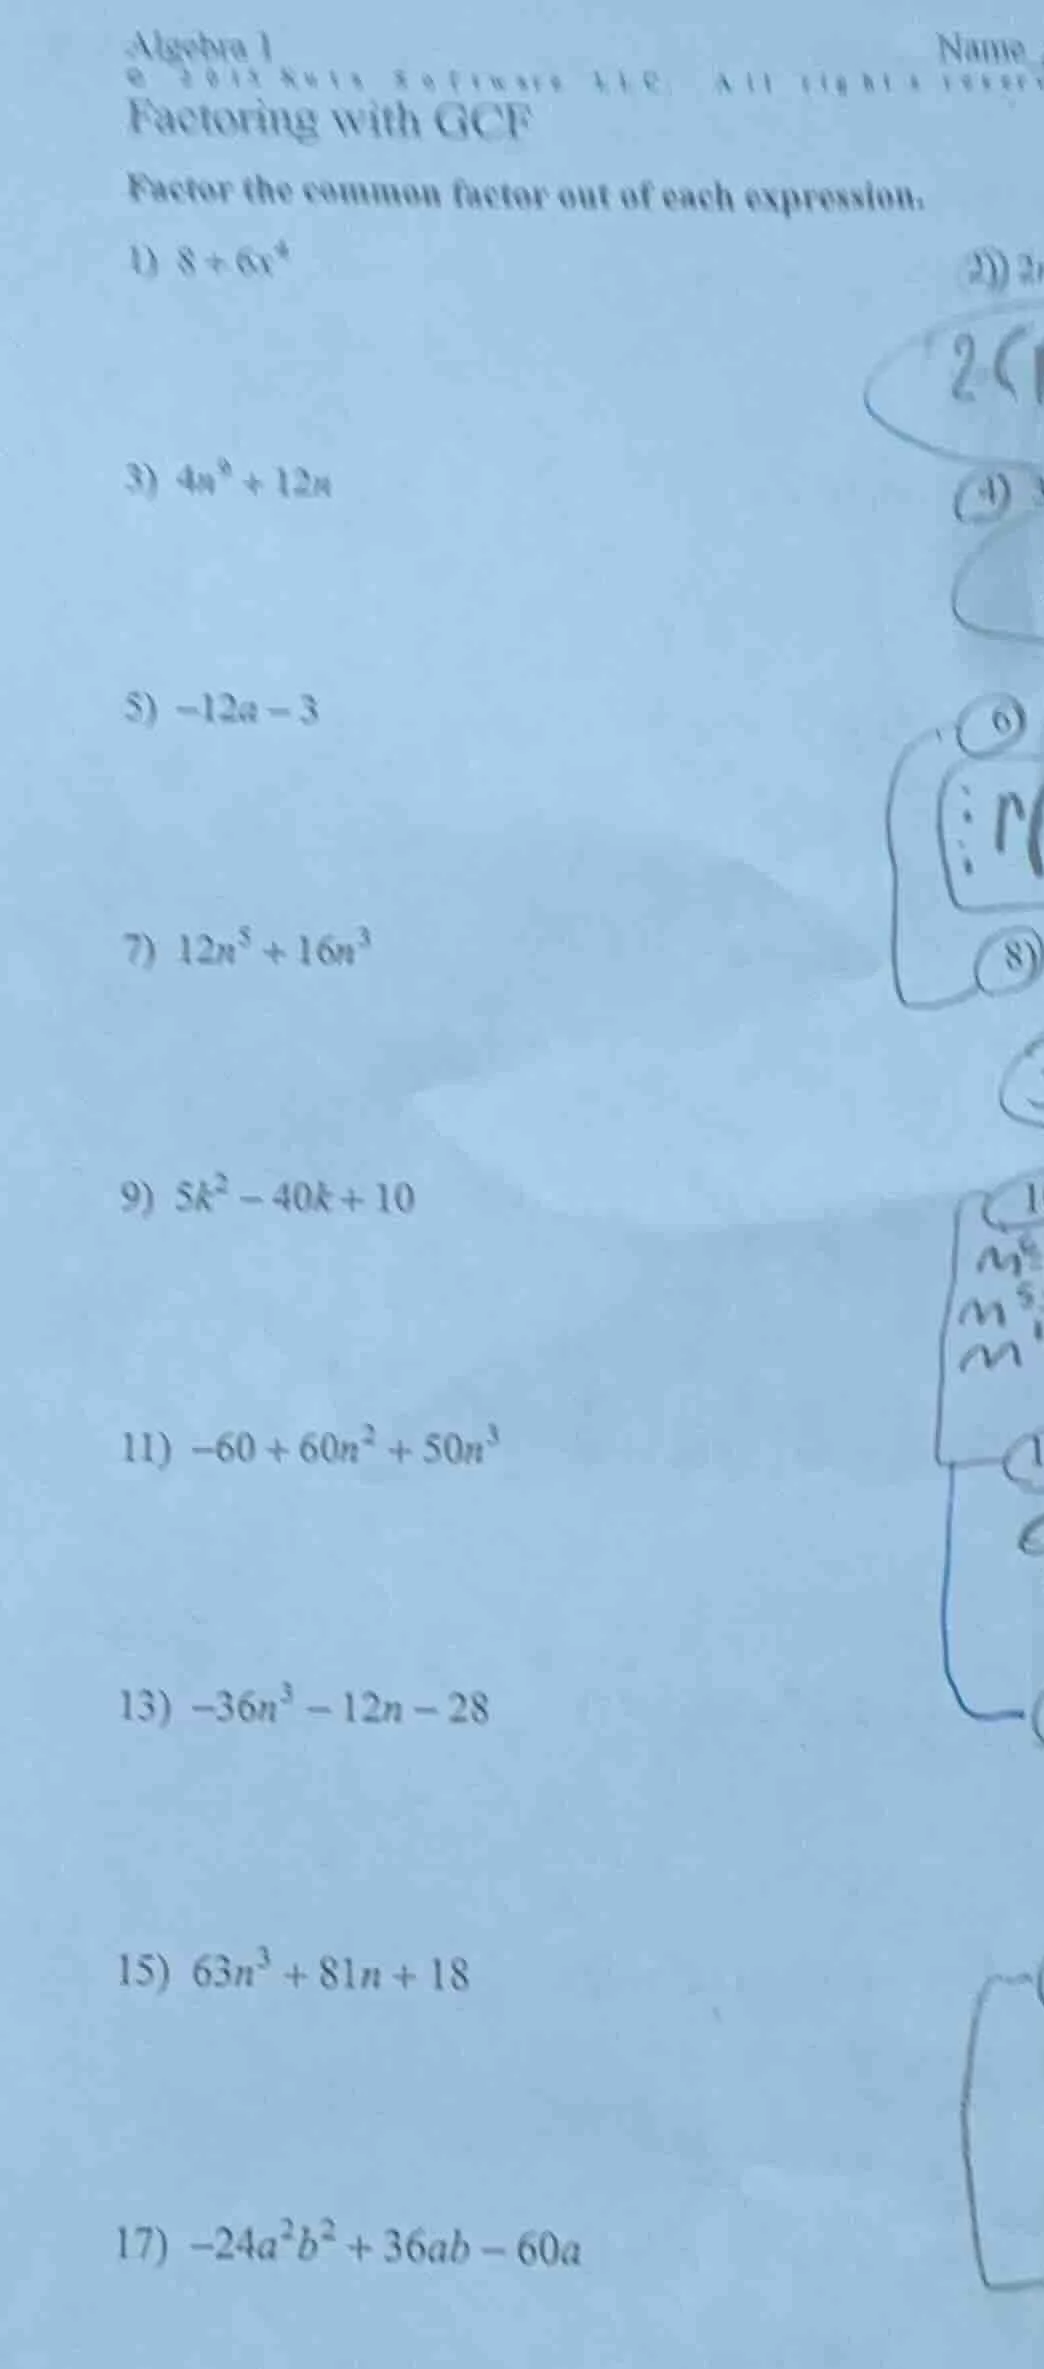 Algebra 1 Name
© 2013 Kuta Software LLC. All rights reser
Factoring with GCF
Factor the common factor out of each expression.
1) 8 + 6x⁴ 2) 2
2(
3) 4n⁹ + 12n 4)
5) −12a − 3 6)
7) 12n⁵ + 16n³ 8)
9) 5k² − 40k + 10 1
m
m⁵
m
11) −60 + 60n² + 50n³ 1
13) −36n³ − 12n − 28
15) 63n³ + 81n + 18
17) −24a²b² + 36ab − 60a